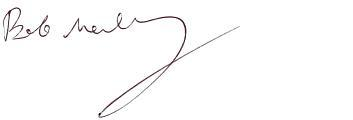 Bob Marley